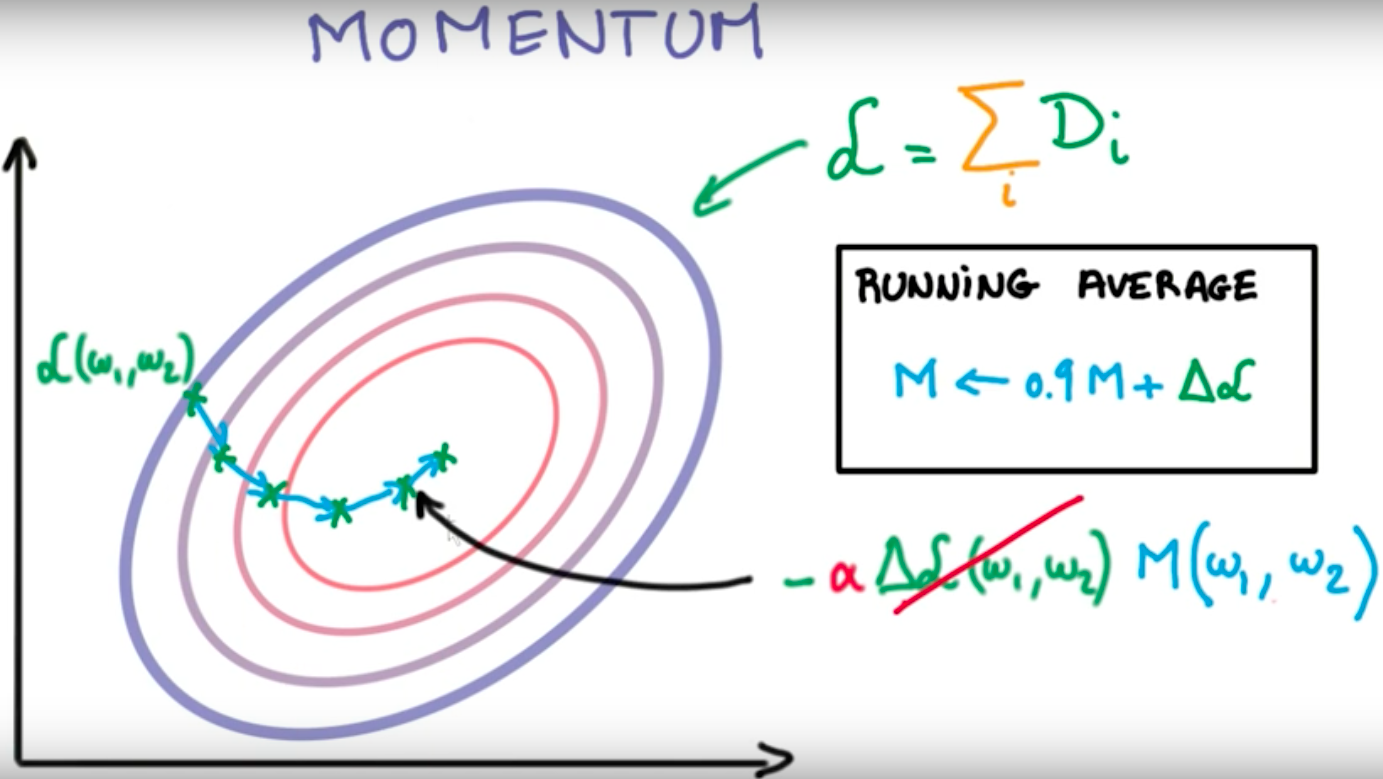 MOMENTUM
ℒ = ∑ᵢ Dᵢ
RUNNING AVERAGE
M ← 0.9 M + Δℒ
ℒ(ω₁, ω₂)
- α Δℒ(ω₁, ω₂) M(ω₁, ω₂)